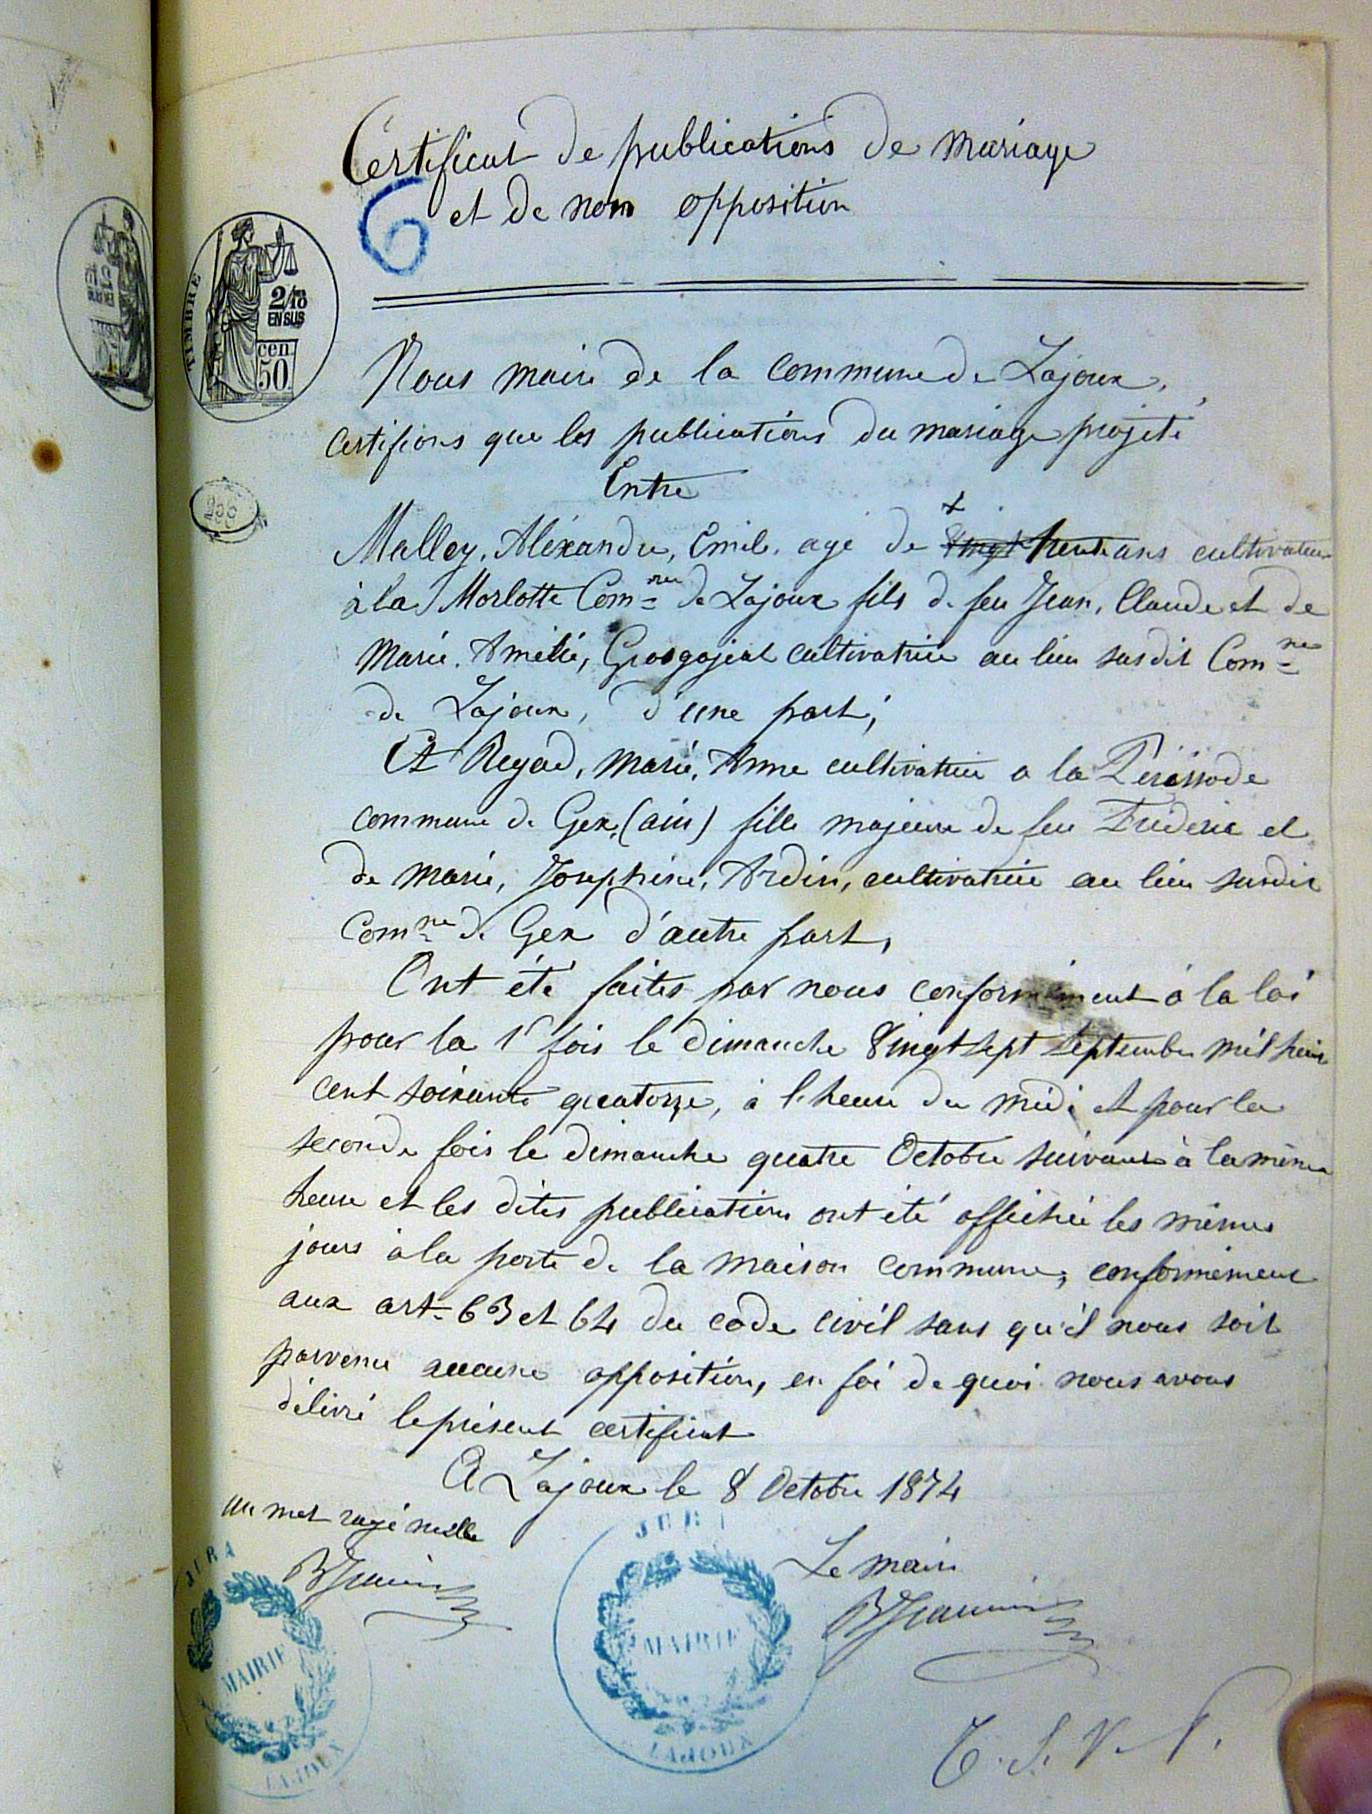 Certificat de publications de mariage
et de non opposition
6
TIMBRE
2/10
EN SUS
cen.
50
Nous maire de la commune de Lajoux,
certifions que les publications du mariage projeté
Entre
Malley, Aléxandre, Emile, agé de vingt trente ans cultivateur
à la Morlotte Com=ne de Lajoux fils de feu Jean, Claude et de
Marie, Amélie, Grosgojeat cultivatrice au lieu susdit Com=ne
de Lajoux, d'une part;
Et Regad, Marie, Anne cultivatrice a la
commune de Gex, (ain) fille majeure de feu Frédéric et
de Marie, Joséphine, Ardin, cultivatrice au lieu susdit
Com=ne de Gex d'autre part,
Ont été faites par nous conformément à la loi
pour la 1r fois le dimanche vingt sept Septembre mil huit
cent soixante quatorze, à l'heure du midi et pour la
seconde fois le dimanche quatre Octobre suivant à la même
heure et les dites publications ont été affiché les mêmes
jours à la porte de la maison commune, conformément
aux art. 63 et 64 du code civil sans qu'il nous soit
parvenu aucune opposition, en foi de quoi nous avons
délivré le présent certificat
A Lajoux le 8 Octobre 1874
un mot rayé nulle
Le maire
JURA
MAIRIE
LAJOUX
JURA
MAIRIE
LAJOUX
T. S. V. P.